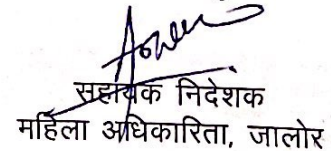 सहायक निदेशक
महिला अधिकारिता, जालोर